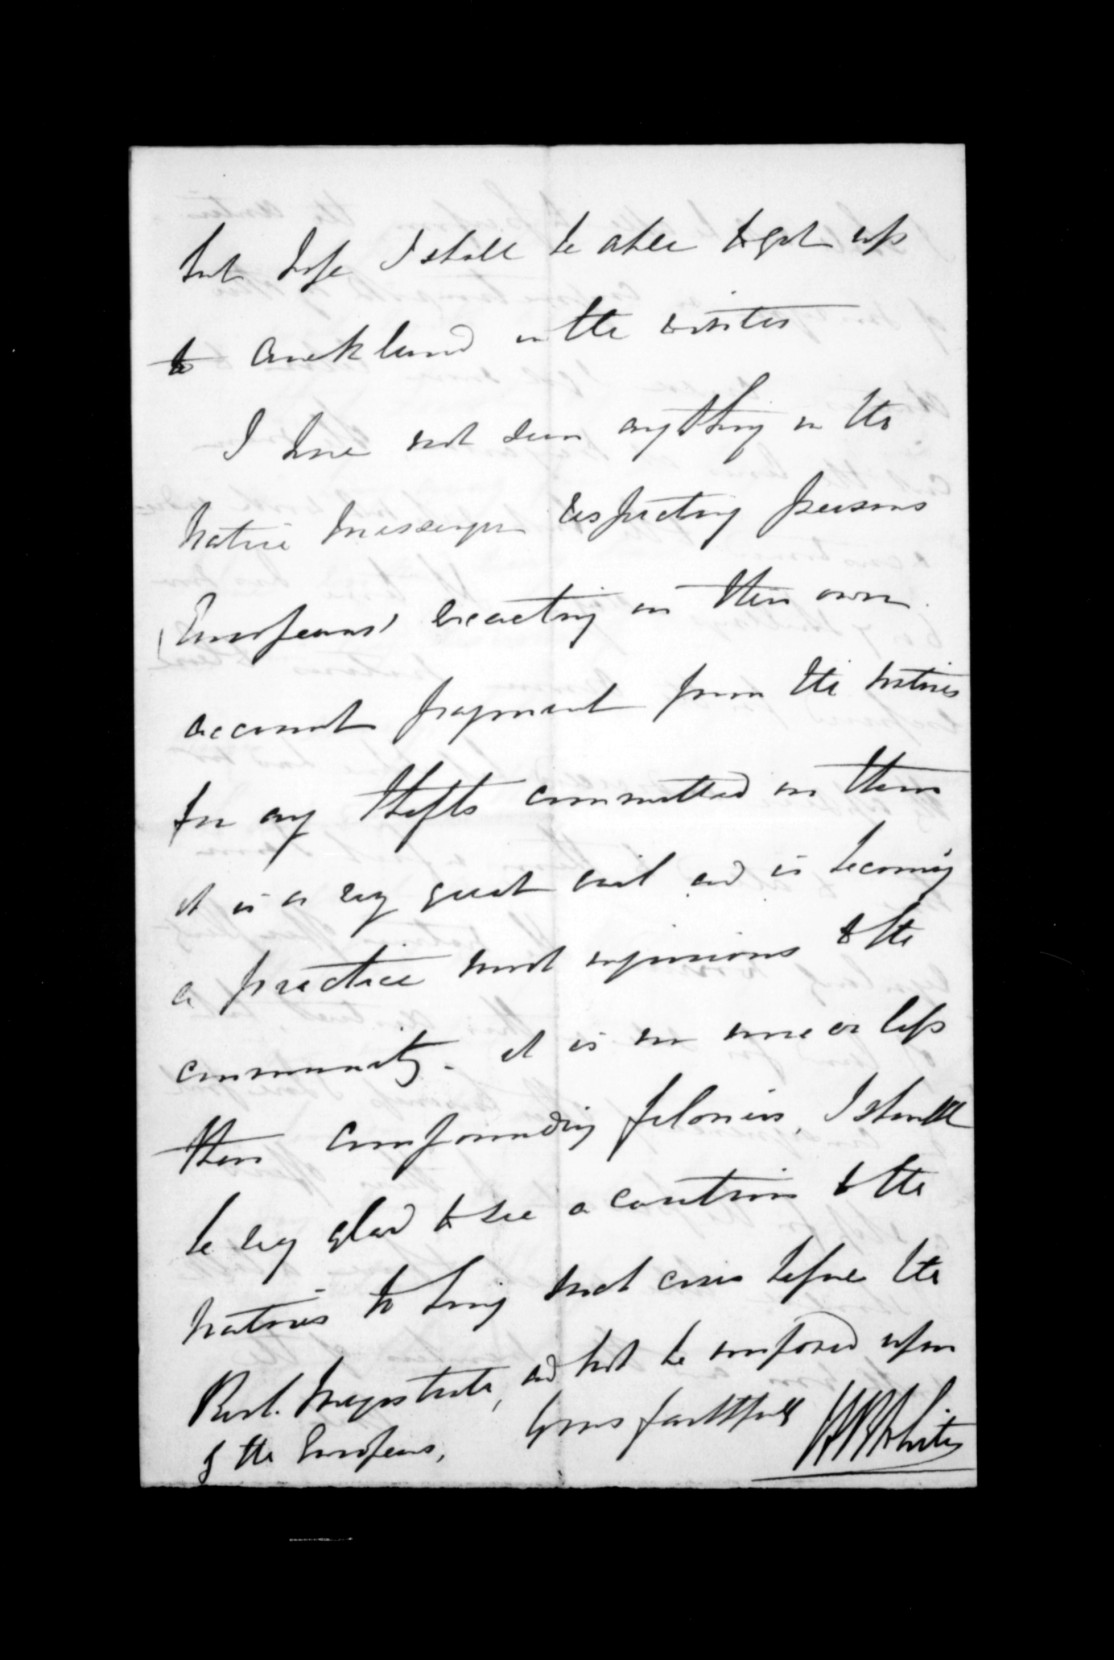 but hope I shall be able to get up
to Auckland in the winter
I have not seen anything in the
Native Messenger respecting persons
(Europeans) exacting on their own
account payment from the natives
for any thefts committed on them
it is a very great evil and is becoming
a practice most injurious to the
community. it is no more or less
than compounding felonies, I should
be very glad to see a caution to the
natives to bring such cases before the
Resdt. Magistrate, and not be imposed upon
by the Europeans,
Yours faithfully WBWhite